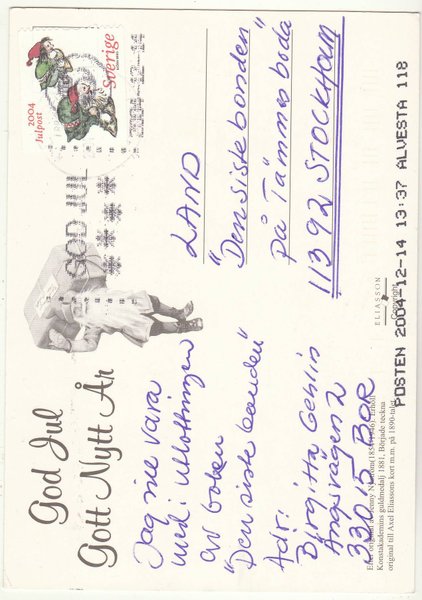 God Jul
Gott Nytt År
Jag vill vara
med i utlottningen
av boken
"Den siste bonden"
Adr:
Birgitta Gehlin
Ängsvägen 2
330 15 BOR
2004
Julpost
Sverige
GOD JUL
LAND
"Den siste bonden"
på Tämmesboda
113 92 STOCKHOLM
ELIASSON
Copyright
Efter original av Jenny Nyström (1854-1946). Erhöll
Konstakademins guldmedalj 1881. Började teckna
original till Axel Eliassons kort m.m. på 1890-talet
POSTEN 2004-12-14 13:37 ALVESTA 118